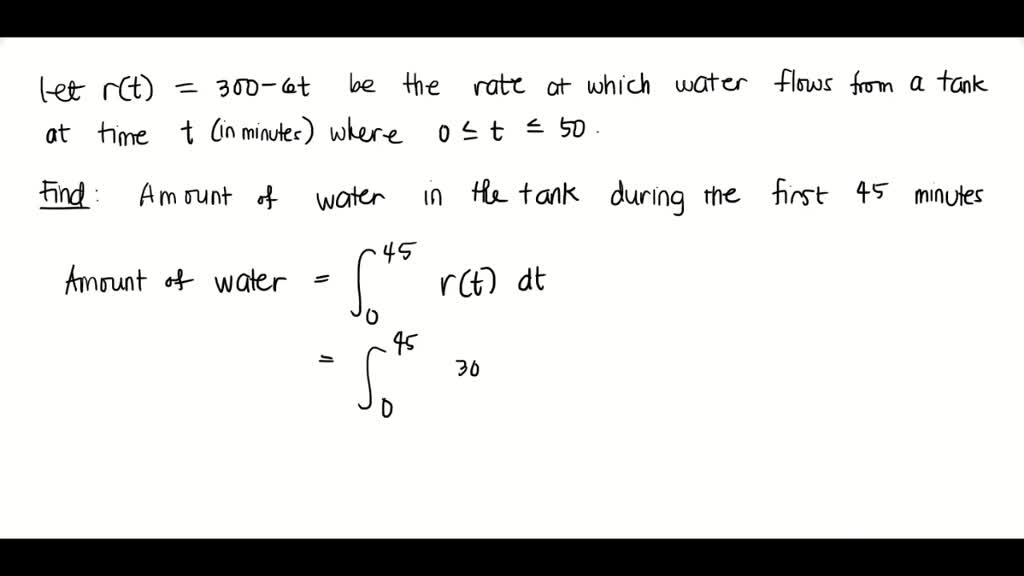 Let r(t) = 300-6t be the rate at which water flows from a tank
at time t (in minutes) where 0 ≤ t ≤ 50.
Find: Amount of water in the tank during the first 45 minutes
Amount of water = ∫₀⁴⁵ r(t) dt
= ∫₀⁴⁵ 30